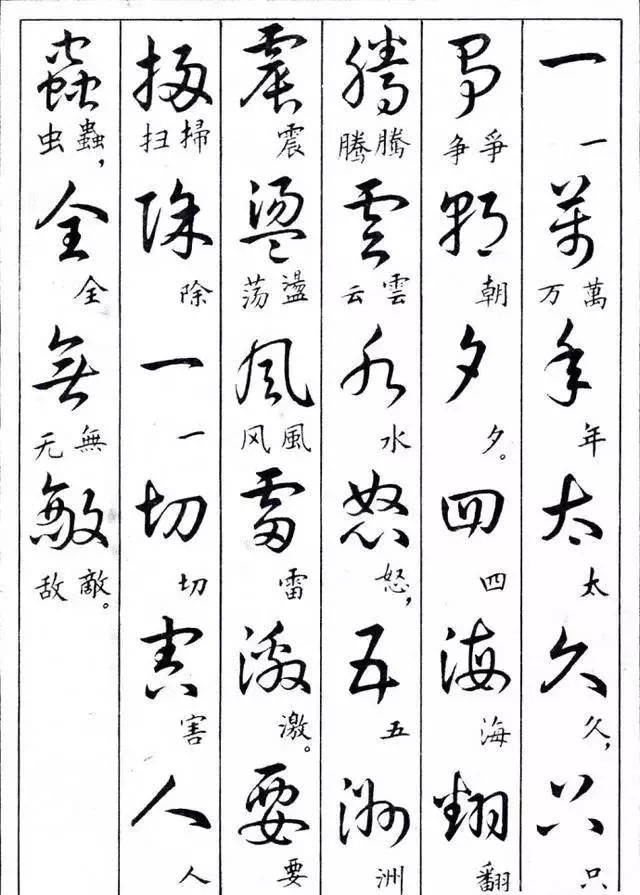 一萬年太久只
一 萬万 年 太 久， 只
爭朝夕四海翻
爭争 朝 夕。 四 海 翻
騰雲水怒五洲
騰腾 雲云 水 怒， 五 洲
震盪風雷激要
震 盪荡 風风 雷 激。 要
掃除一切害人
掃扫 除 一 切 害 人
蟲全無敵
蟲虫， 全 無无 敵敌。